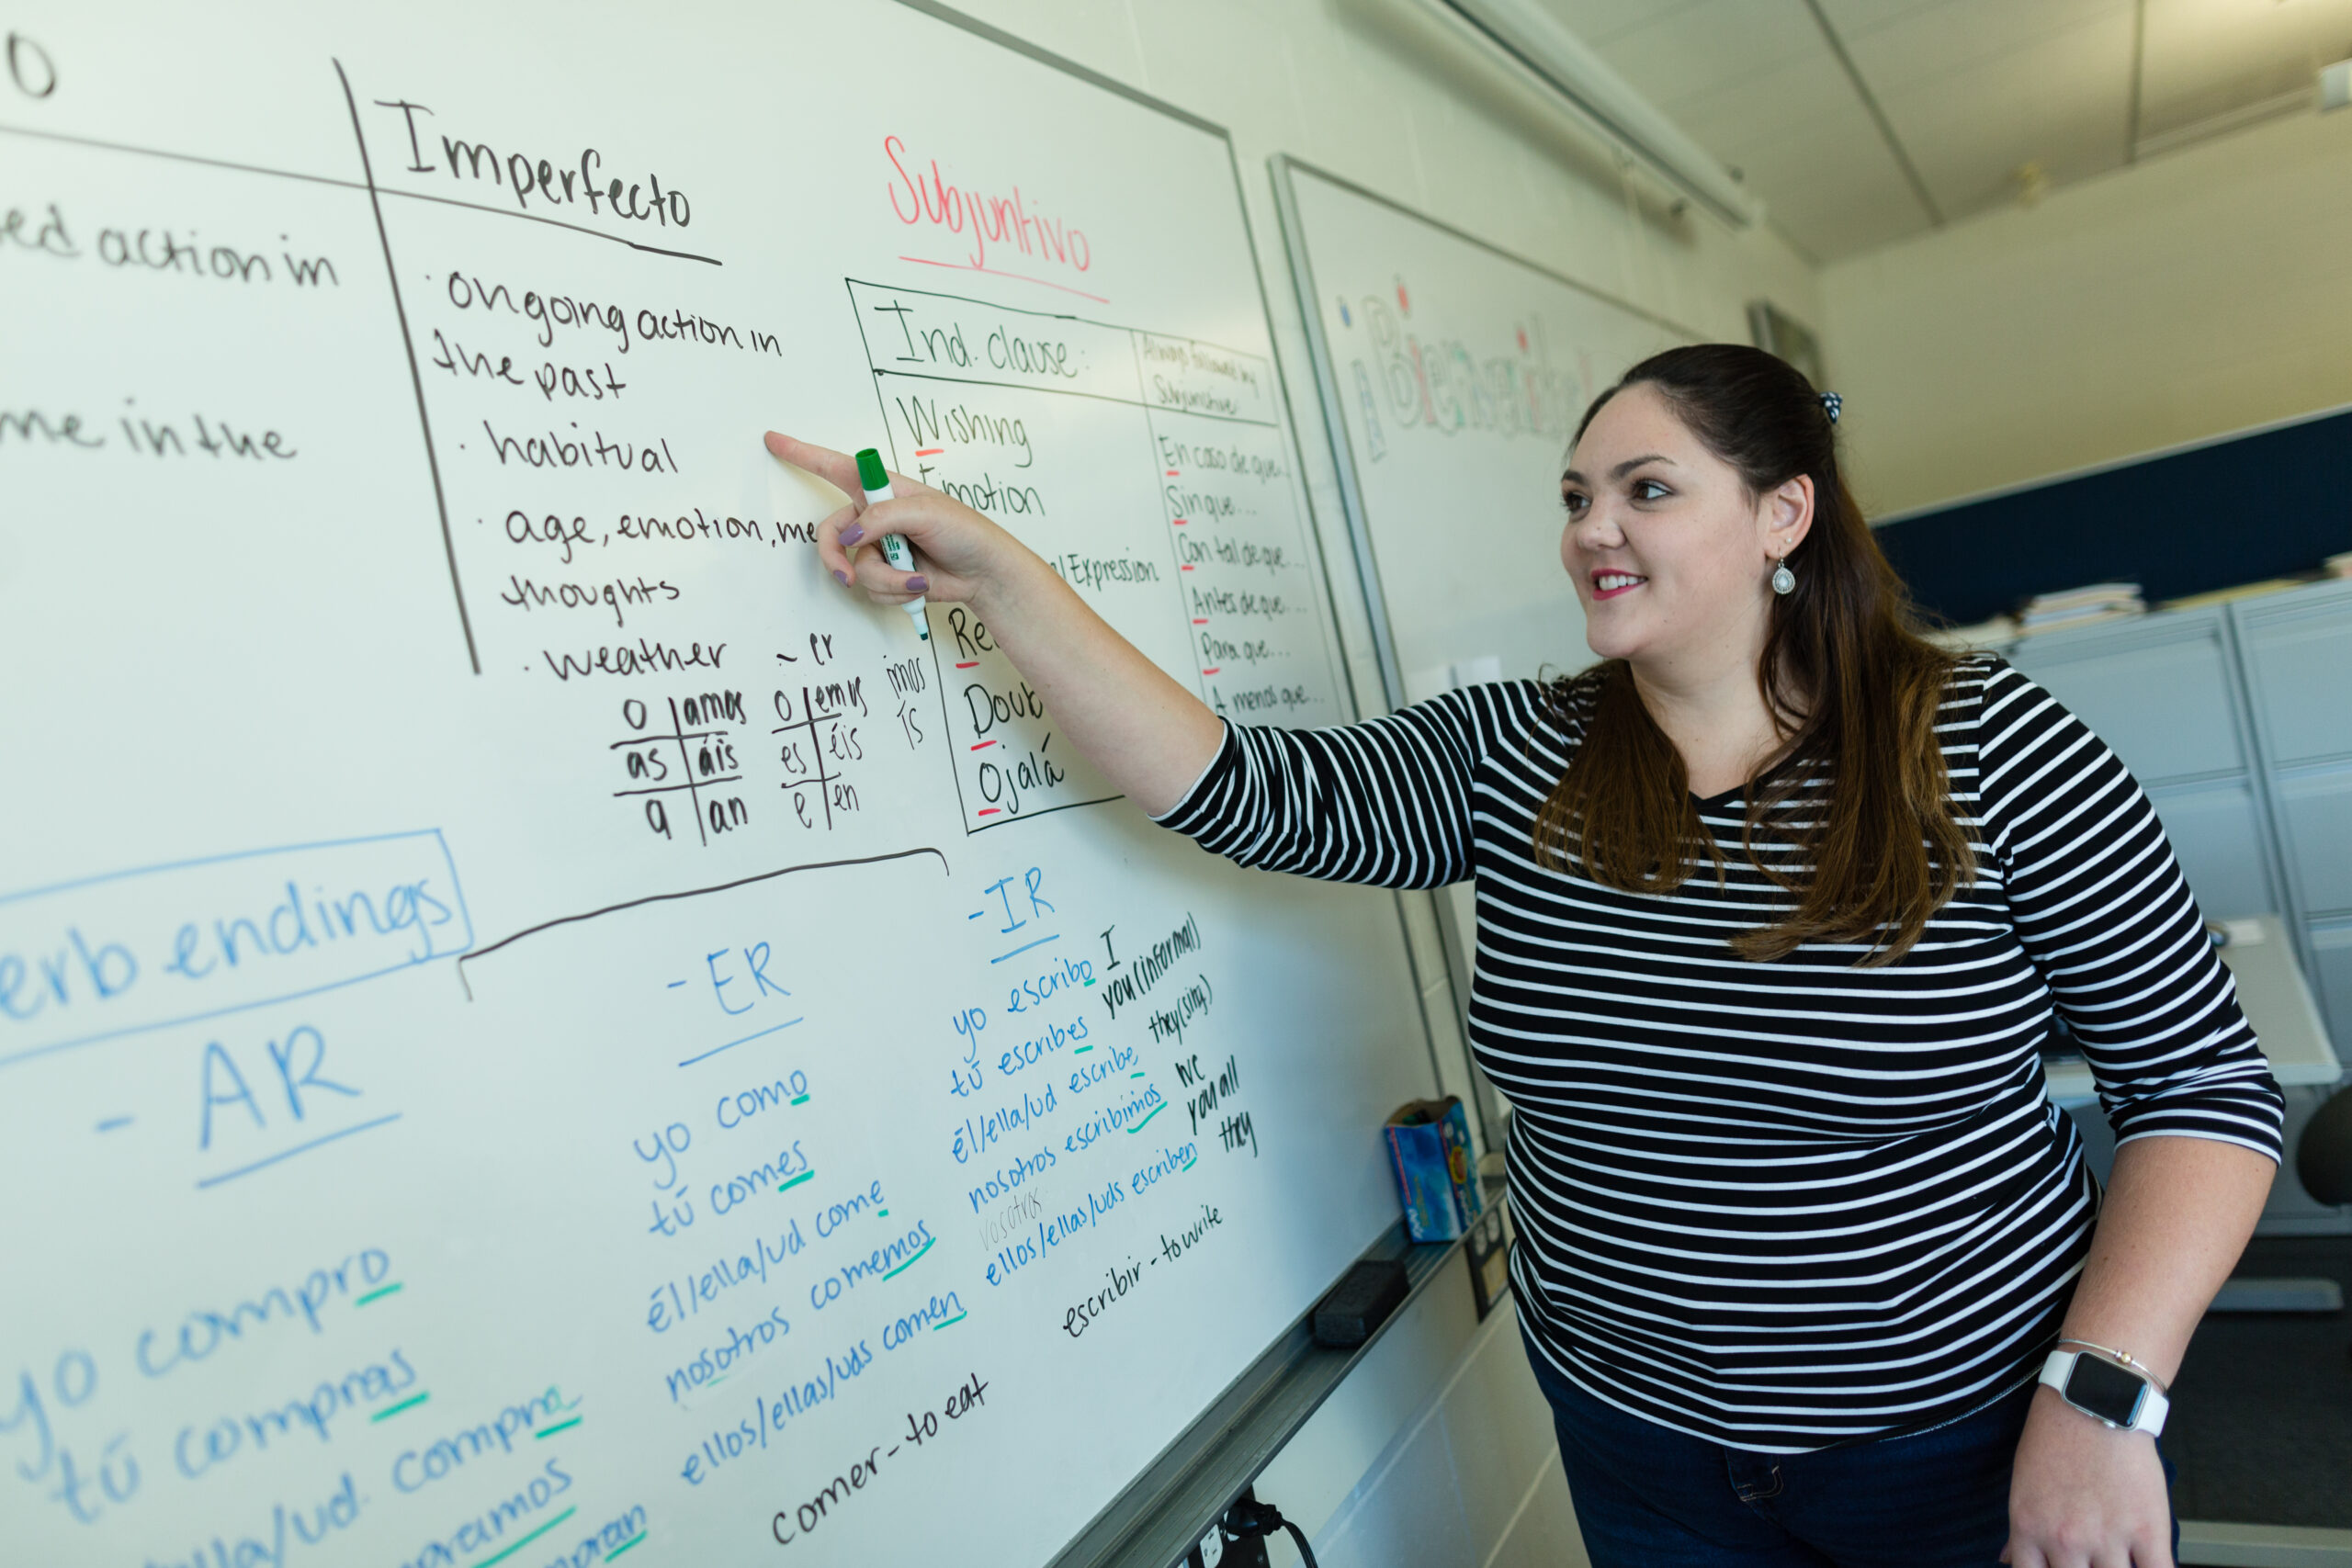 o
ed action in
me in the
Imperfecto
· ongoing action in
the past
· habitual
· age, emotion, me
thoughts
· weather
o amos
as áis
a an
- er
o emos
es éis
e en
imos
ís
Subjuntivo
Ind. clause:
Wishing
Emotion
l Expression
Re
Doub
Ojalá
Always followed by
Subjunctive:
En caso de que...
Sin que...
Con tal de que...
Antes de que...
Para que...
A menos que...
¡Bienvenid
erb endings
- AR
yo compro
tú compras
lla/ud. compra
pramos
pran
- ER
yo como
tú comes
él/ella/ud come
nosotros comemos
ellos/ellas/uds comen
comer - to eat
- IR
yo escribo
tú escribes
él/ella/ud escribe
nosotros escribimos
vosotros
ellos/ellas/uds escriben
I
you (informal)
they (sing)
we
you all
they
escribir - to write